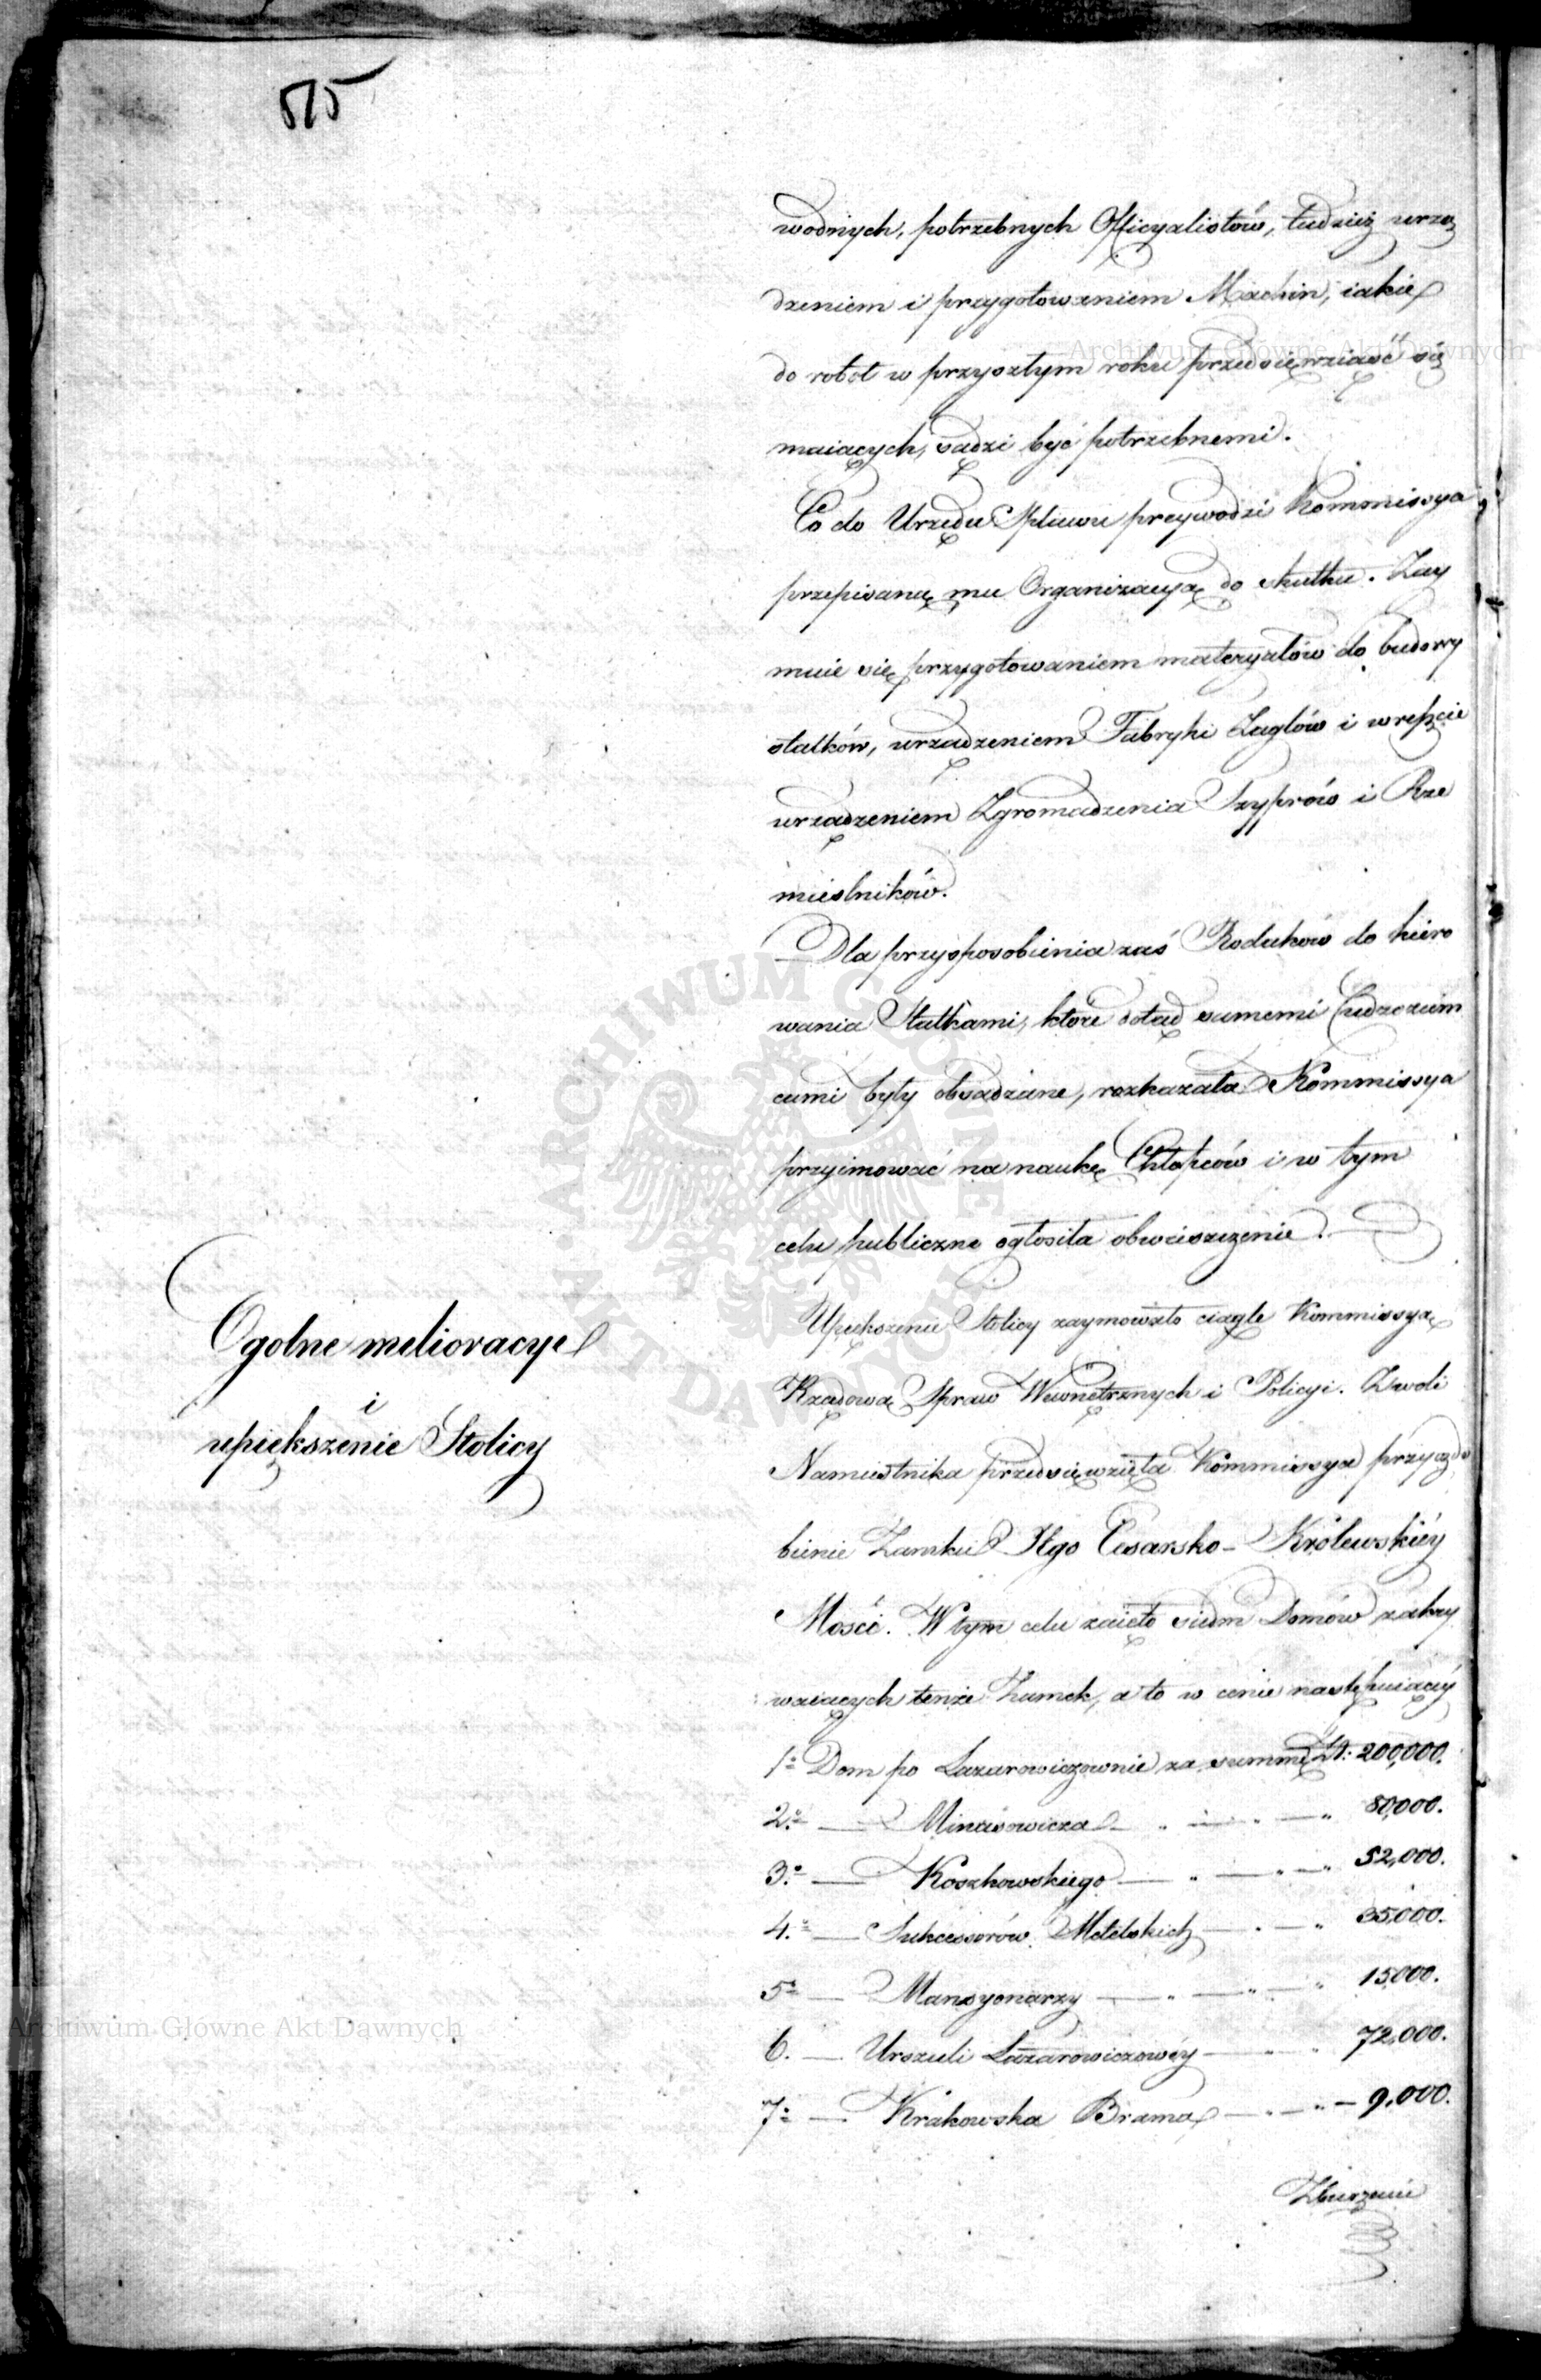 515
wodnych, potrzebnych Officyalistów, tudzież urzą
dzeniem i przygotowaniem Machin, iakie
do robot w przyszłym roku przedsięwziąść się
maiących, sądzi być potrzebnemi.
Co do Urzędu Spławu przywodzi Kommissya
przepisaną mu Organizacyą do skutku. Zay
muie się przygotowaniem materyałów do budowy
statków, urządzeniem Fabryki Żaglów i wreszcie
urządzeniem Zgromadzenia Szyprów i Rze
mieslników.
Dla przysposobienia zaś Rodaków do kiero
wania Statkami, które dotąd samemi Cudzoziem
cami były obsadzane, rozkazała Kommissya
przyimować na naukę Chłopców i w tym
celu publiczne ogłosiła obwieszczenie.
Ogolne melioracye
i
upiększenie Stolicy
Upiększenie Stolicy zaymowało ciągle Kommissyą
Rządową Spraw Wewnętrznych i Policyi. Z woli
Namiestnika przedsięwzięła Kommissya przyozdo
bienie Zamku Jego Cesarsko-Królewskiéy
Mości. W tym celu zaięto siedm Domów zakry
waiących tenże Zamek, a to w cenie następuiącéy
1o Dom po Lazarowiczownie za summę Zł: 200,000.
2.o — Minasowicza — " — " — " 80,000.
3.o — Koszkowskiego — " — " — " 52,000.
4.o — Sukcessorów Metelskich — " — " 35,000.
5o — Mansyonarzy — " — " — " 15,000.
6. — Urszuli Lazarowiczowéy — " — " 72,000.
7o — Krakowska Brama — " — " — 9,000.
Zburzenie
Archiwum Główne Akt Dawnych
Archiwum Główne Akt Dawnych
ARCHIWUM GŁÓWNE AKT DAWNYCH